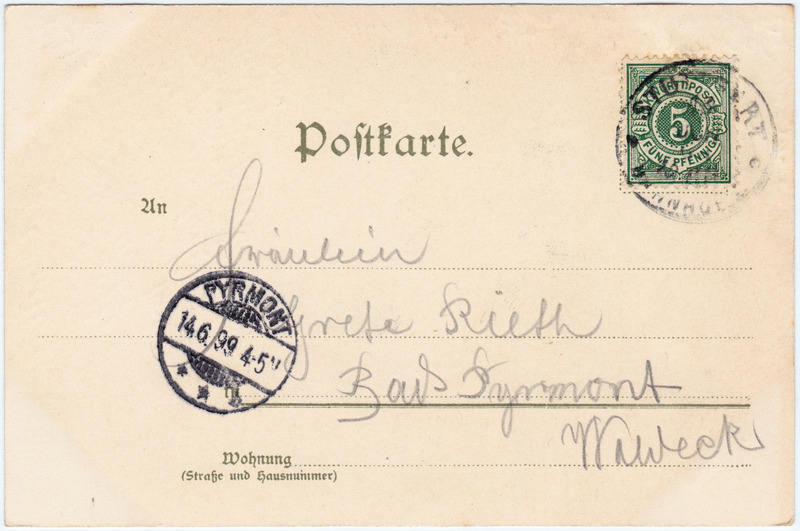 K. WÜRTT. POST
5
FÜNF PFENNIG
STUTTGART
Postkarte.
An
Fräulein
PYRMONT
14.6.99 4-5N
Grete Rieth
in
Bad Pyrmont
Waldeck
Wohnung
(Straße und Hausnummer)